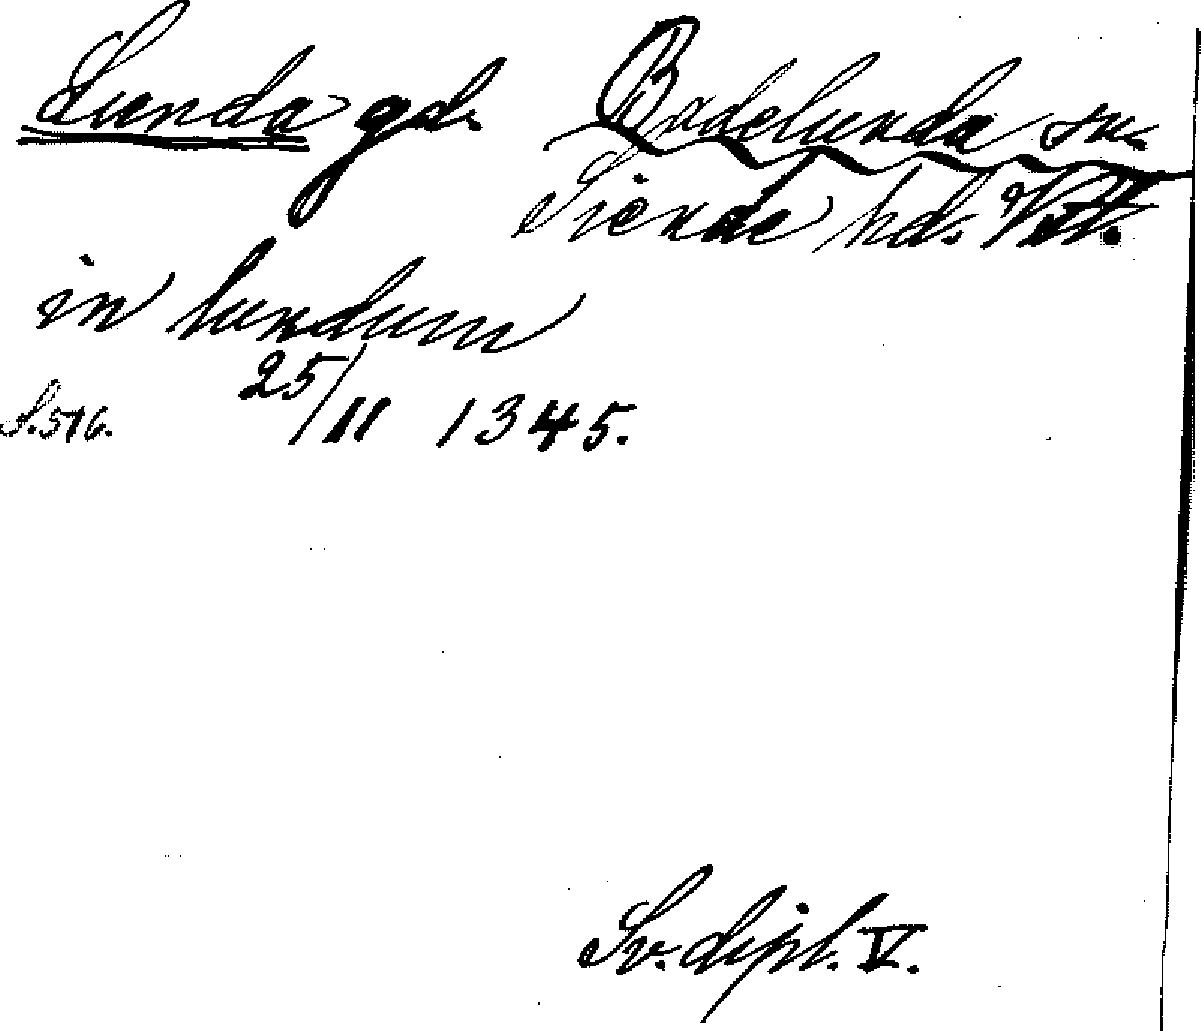 Lunda gd. Badelunda sn.
Siende hd. Vstl.
in lundum
25/11 1345.
S. 576.
Sv. dipl. V.